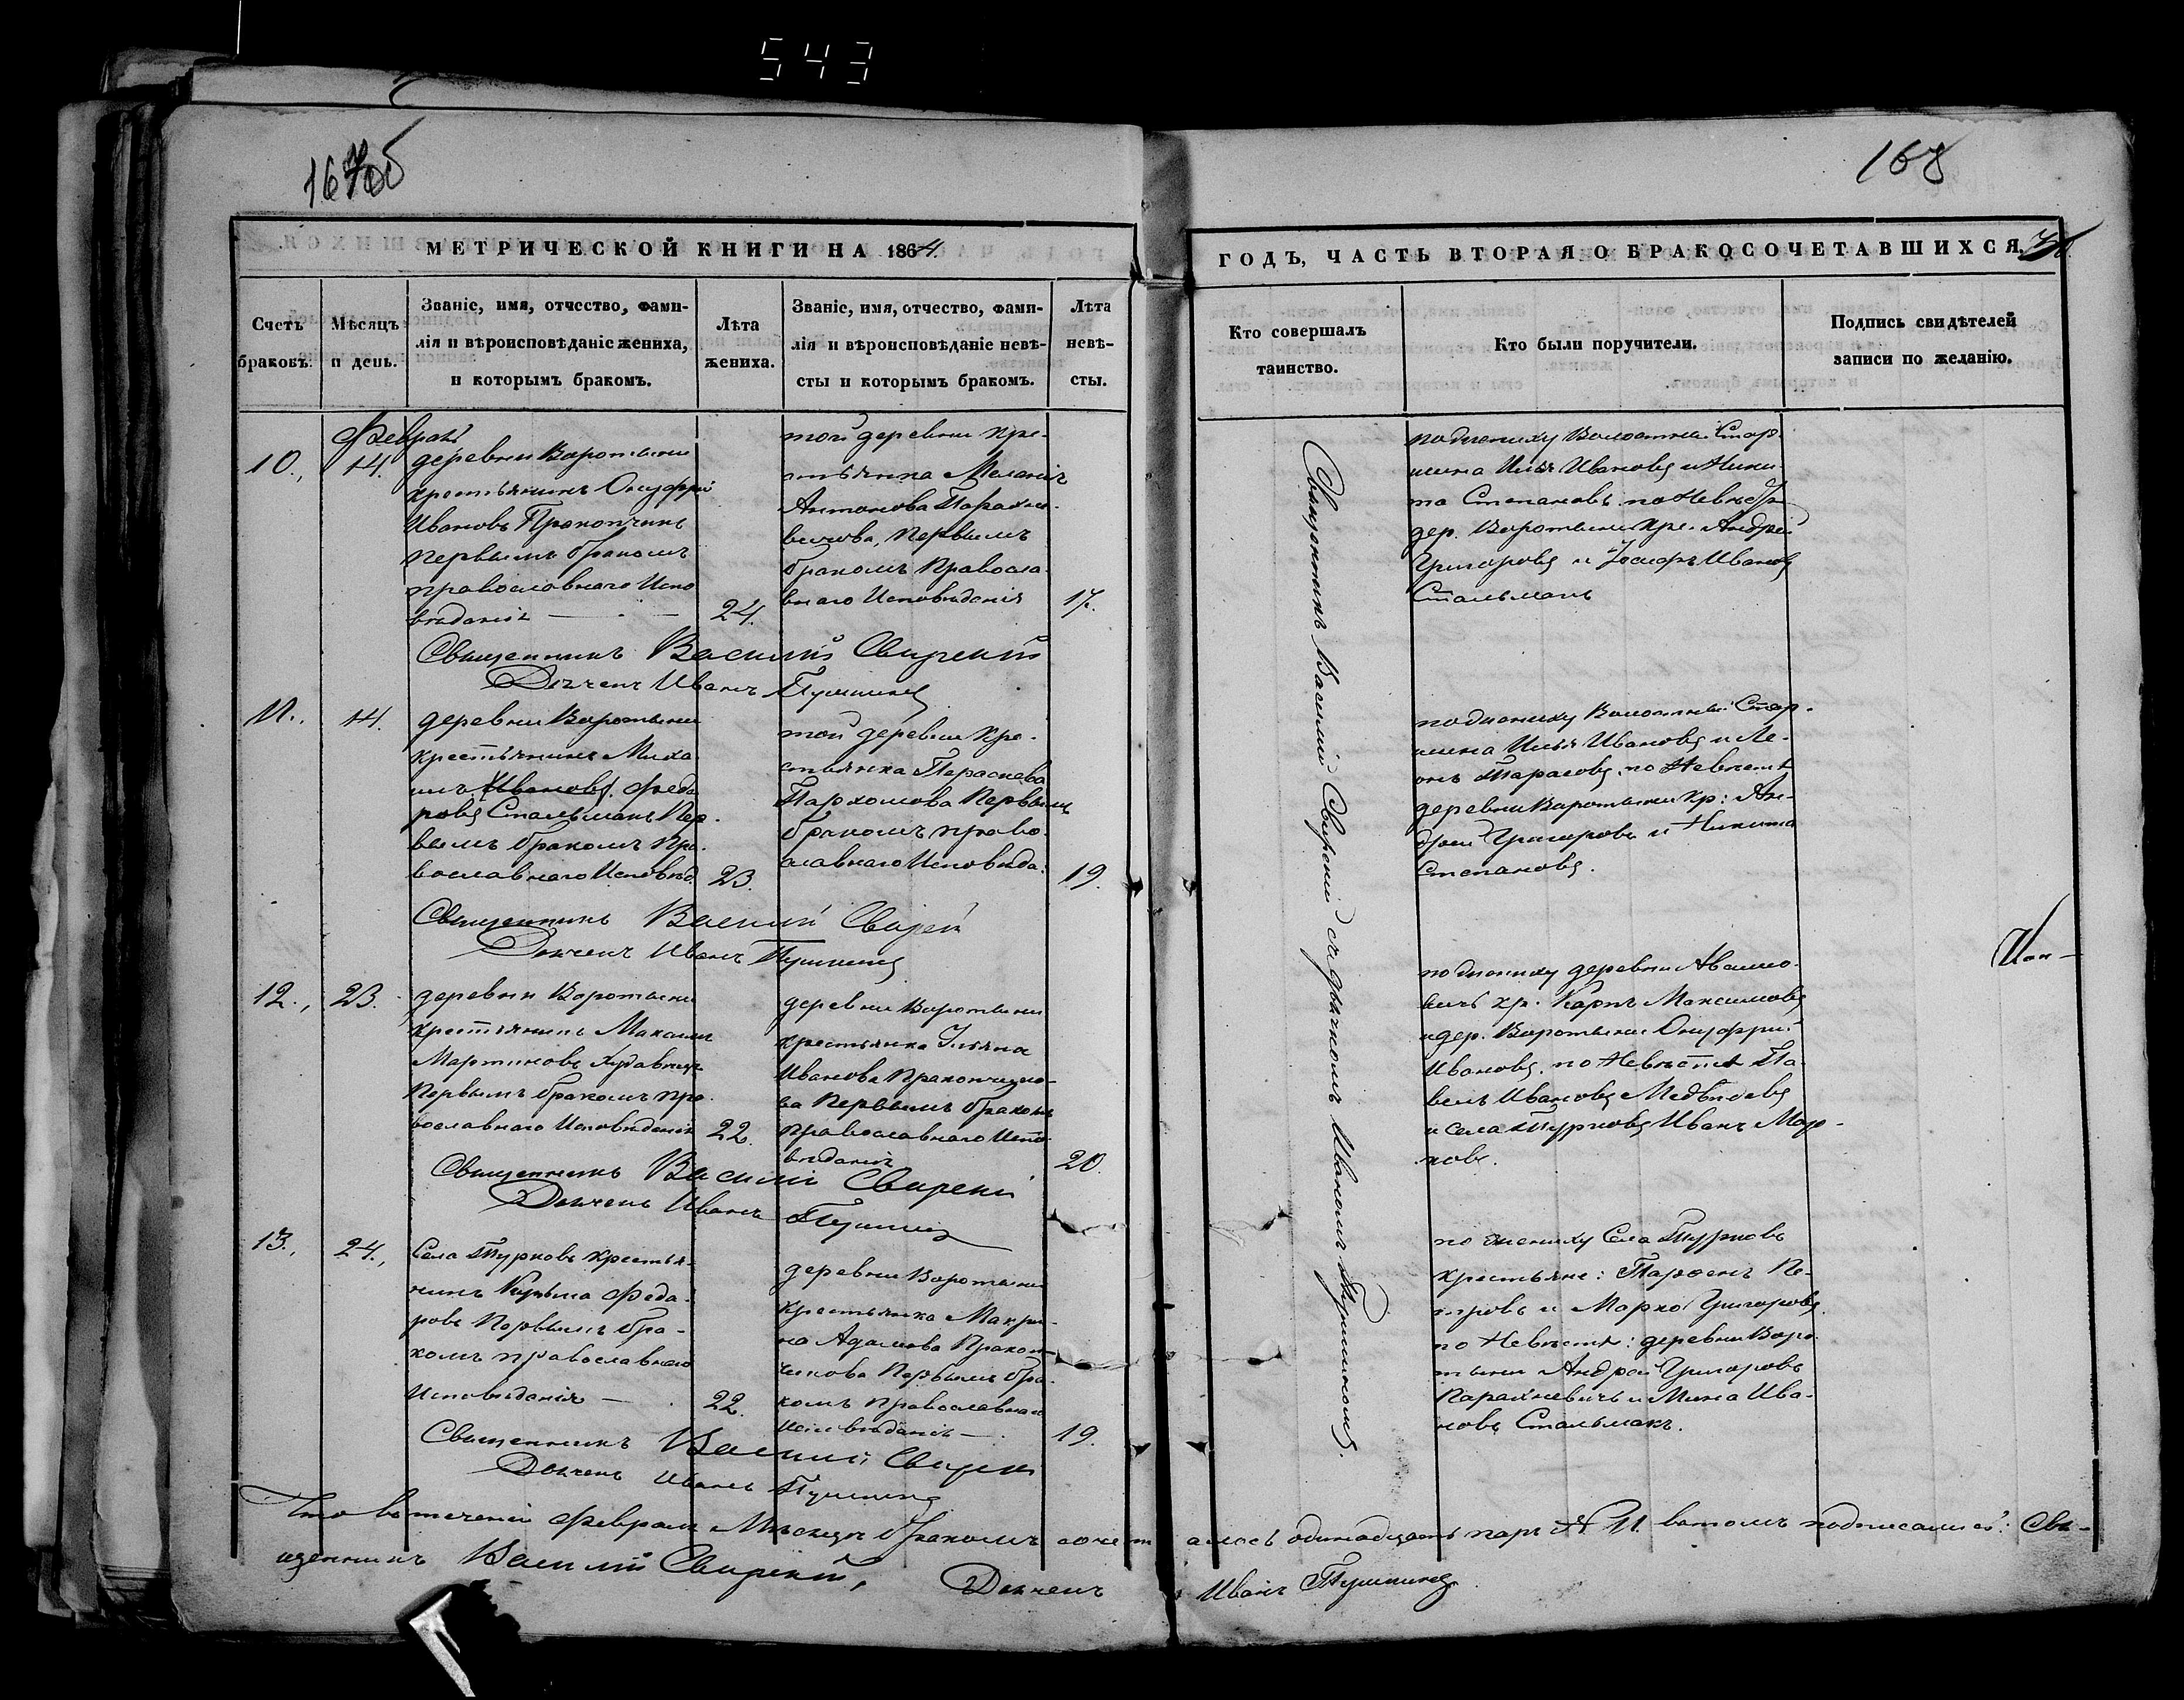 543
167об
168
МЕТРИЧЕСКОЙ КНИГИ НА 1864.
ГОДЪ, ЧАСТЬ ВТОРАЯ О БРАКОСОЧЕТАВШИХСЯ.
Счетъ
браковъ.
Мѣсяцъ
и день.
Званіе, имя, отчество, фами-
лія и вѣроисповѣданіе жениха,
и которымъ бракомъ.
Лѣта
жениха.
Званіе, имя, отчество, фами-
лія и вѣроисповѣданіе невѣ-
сты и которымъ бракомъ.
Лѣта
невѣ-
сты.
Кто совершалъ
таинство.
Кто были поручители.
Подпись свидѣтелей
записи по желанію.
Февраль
10., 14.
деревни Воротыни
крестьянинъ Онуфрій
Ивановъ Прокопчикъ
первымъ бракомъ
православнаго Испо
вѣданія — 24.
той деревни кре-
стьянка Меланія
Антонова Парахне-
вичова, первымъ
бракомъ Правосла-
внаго Исповѣданія 17.
по жениху Волостный Стар-
шина Илья Ивановъ и Ники-
та Степановъ по Невѣстѣ
дер. Воротыни кре. Андрей
Григоровъ и Іосифъ Ивановъ
Стальмахъ
Священникъ Василій Свирскій
Дьячекъ Иванъ Пушкинъ
11., 14.
деревни Воротыни
крестьянинъ Миха
илъ Ивановъ Федо
ровъ Стальмахъ Пер-
вымъ бракомъ Пра-
вославнаго Исповѣд. 23.
той деревни кре-
стьянка Параскева
Пархомова Первымъ
бракомъ право-
славнаго Исповѣда. 19.
по жениху Волостный Стар-
шина Илья Ивановъ и Ле-
онъ Тарасовъ, по Невѣстѣ
деревни Воротыни кр: Ан-
дрей Григоровъ и Никита
Степановъ.
Священникъ Василій Свирскій
Дьячекъ Иванъ Пушкинъ
12., 23.
деревни Воротыни
крестьянинъ Максимъ
Мартиновъ
Первымъ бракомъ пра-
вославнаго Исповѣданія 22.
деревни Воротыни
крестьянка Ульяна
Иванова Прокопчико-
ва Первымъ бракомъ
Православнаго Испо-
вѣданія 20.
по жениху деревни
кр. Карпъ Максимовъ
и дер. Воротыни Онуфрій
Ивановъ, по Невѣстѣ Па-
велъ Ивановъ Медвѣдевъ
и села Турковъ Иванъ Мар-
ковъ.
Священникъ Василій Свирскій
Дьячекъ Иванъ Пушкинъ
13., 24.,
Села Турковъ крестья-
нинъ Кузьма Федо-
ровъ Первымъ бра-
комъ православнаго
Исповѣданія — 22.
деревни Воротыни
крестьянка Макри-
на Адамова Прокоп-
чикова Первымъ бра-
комъ Православнаго
Исповѣданія — 19.
по жениху Села Турковъ
крестьяне: Парфенъ Пе-
тровъ и Марко Григоровъ
по Невѣстѣ: деревни Воро-
тыни Андрей Григоровъ
Парахневичъ и Мина Ива-
новъ Стальмахъ.
Священникъ Василій Свирскій
Дьячекъ Иванъ Пушкинъ
Священникъ Василій Свирскій съ дьячкомъ Иваномъ Пушкиномъ.
Что въ теченіи Февраля Мѣсяца бракомъ сочеталось одинадцать паръ № 11. въ томъ подписались: Свя-
щенникъ Василій Свирскій, Дьячекъ Иванъ Пушкинъ